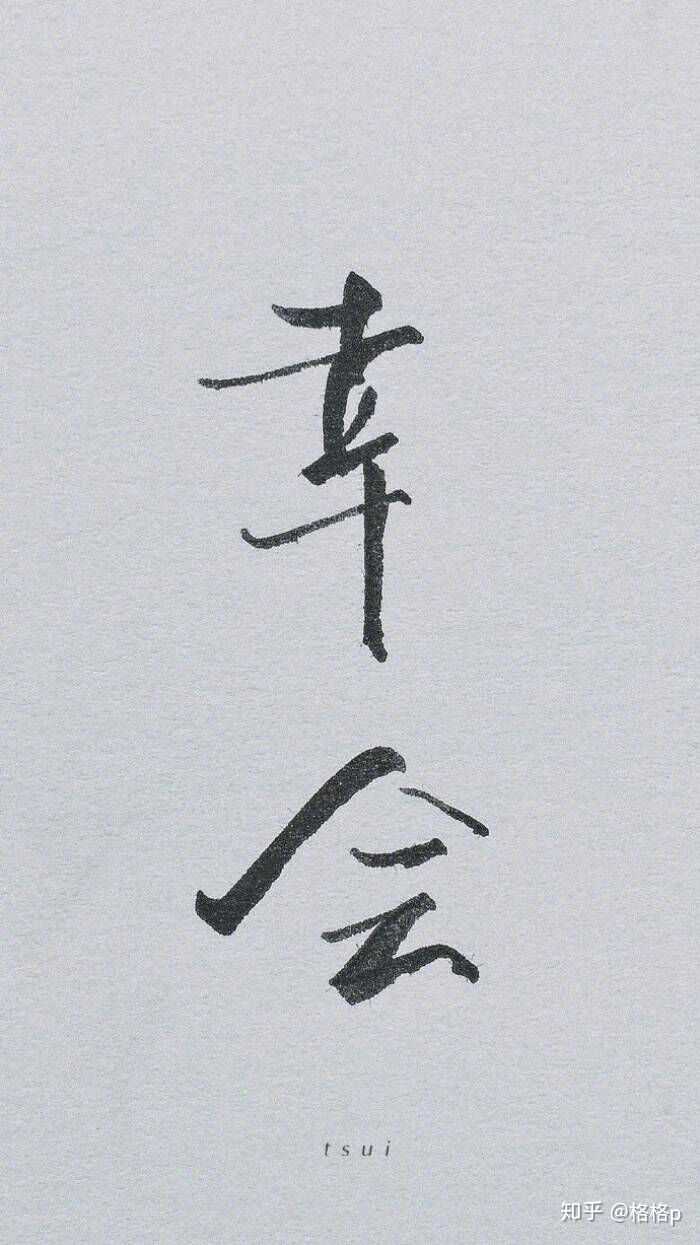 幸会
tsui
知乎 @格格p